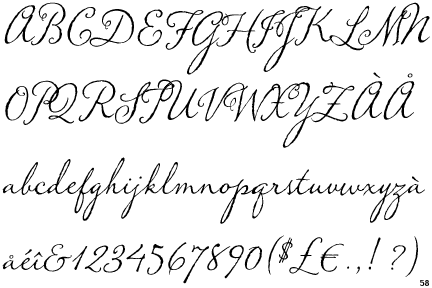 ABCDEFGHIJKLMN
OPQRSTUVWXYZÀÅ
abcdefghijklmnopqrstuvwxyzà
åéî&1234567890($£€.,!?)
58